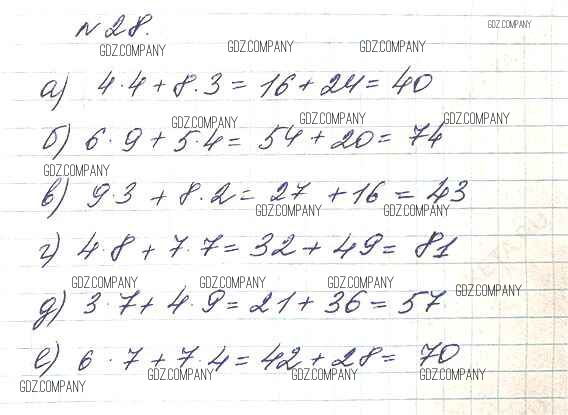 № 28.
GDZ.COMPANY GDZ.COMPANY GDZ.COMPANY GDZ.COMPANY
а) 4·4 + 8·3 = 16 + 24 = 40
GDZ.COMPANY GDZ.COMPANY GDZ.COMPANY
б) 6·9 + 5·4 = 54 + 20 = 74
GDZ.COMPANY
в) 9·3 + 8·2 = 27 + 16 = 43
GDZ.COMPANY GDZ.COMPANY
г) 4·8 + 7·7 = 32 + 49 = 81
GDZ.COMPANY GDZ.COMPANY GDZ.COMPANY GDZ.COMPANY
д) 3·7 + 4·9 = 21 + 36 = 57
е) 6·7 + 7·4 = 42 + 28 = 70
GDZ.COMPANY GDZ.COMPANY GDZ.COMPANY GDZ.COMPANY